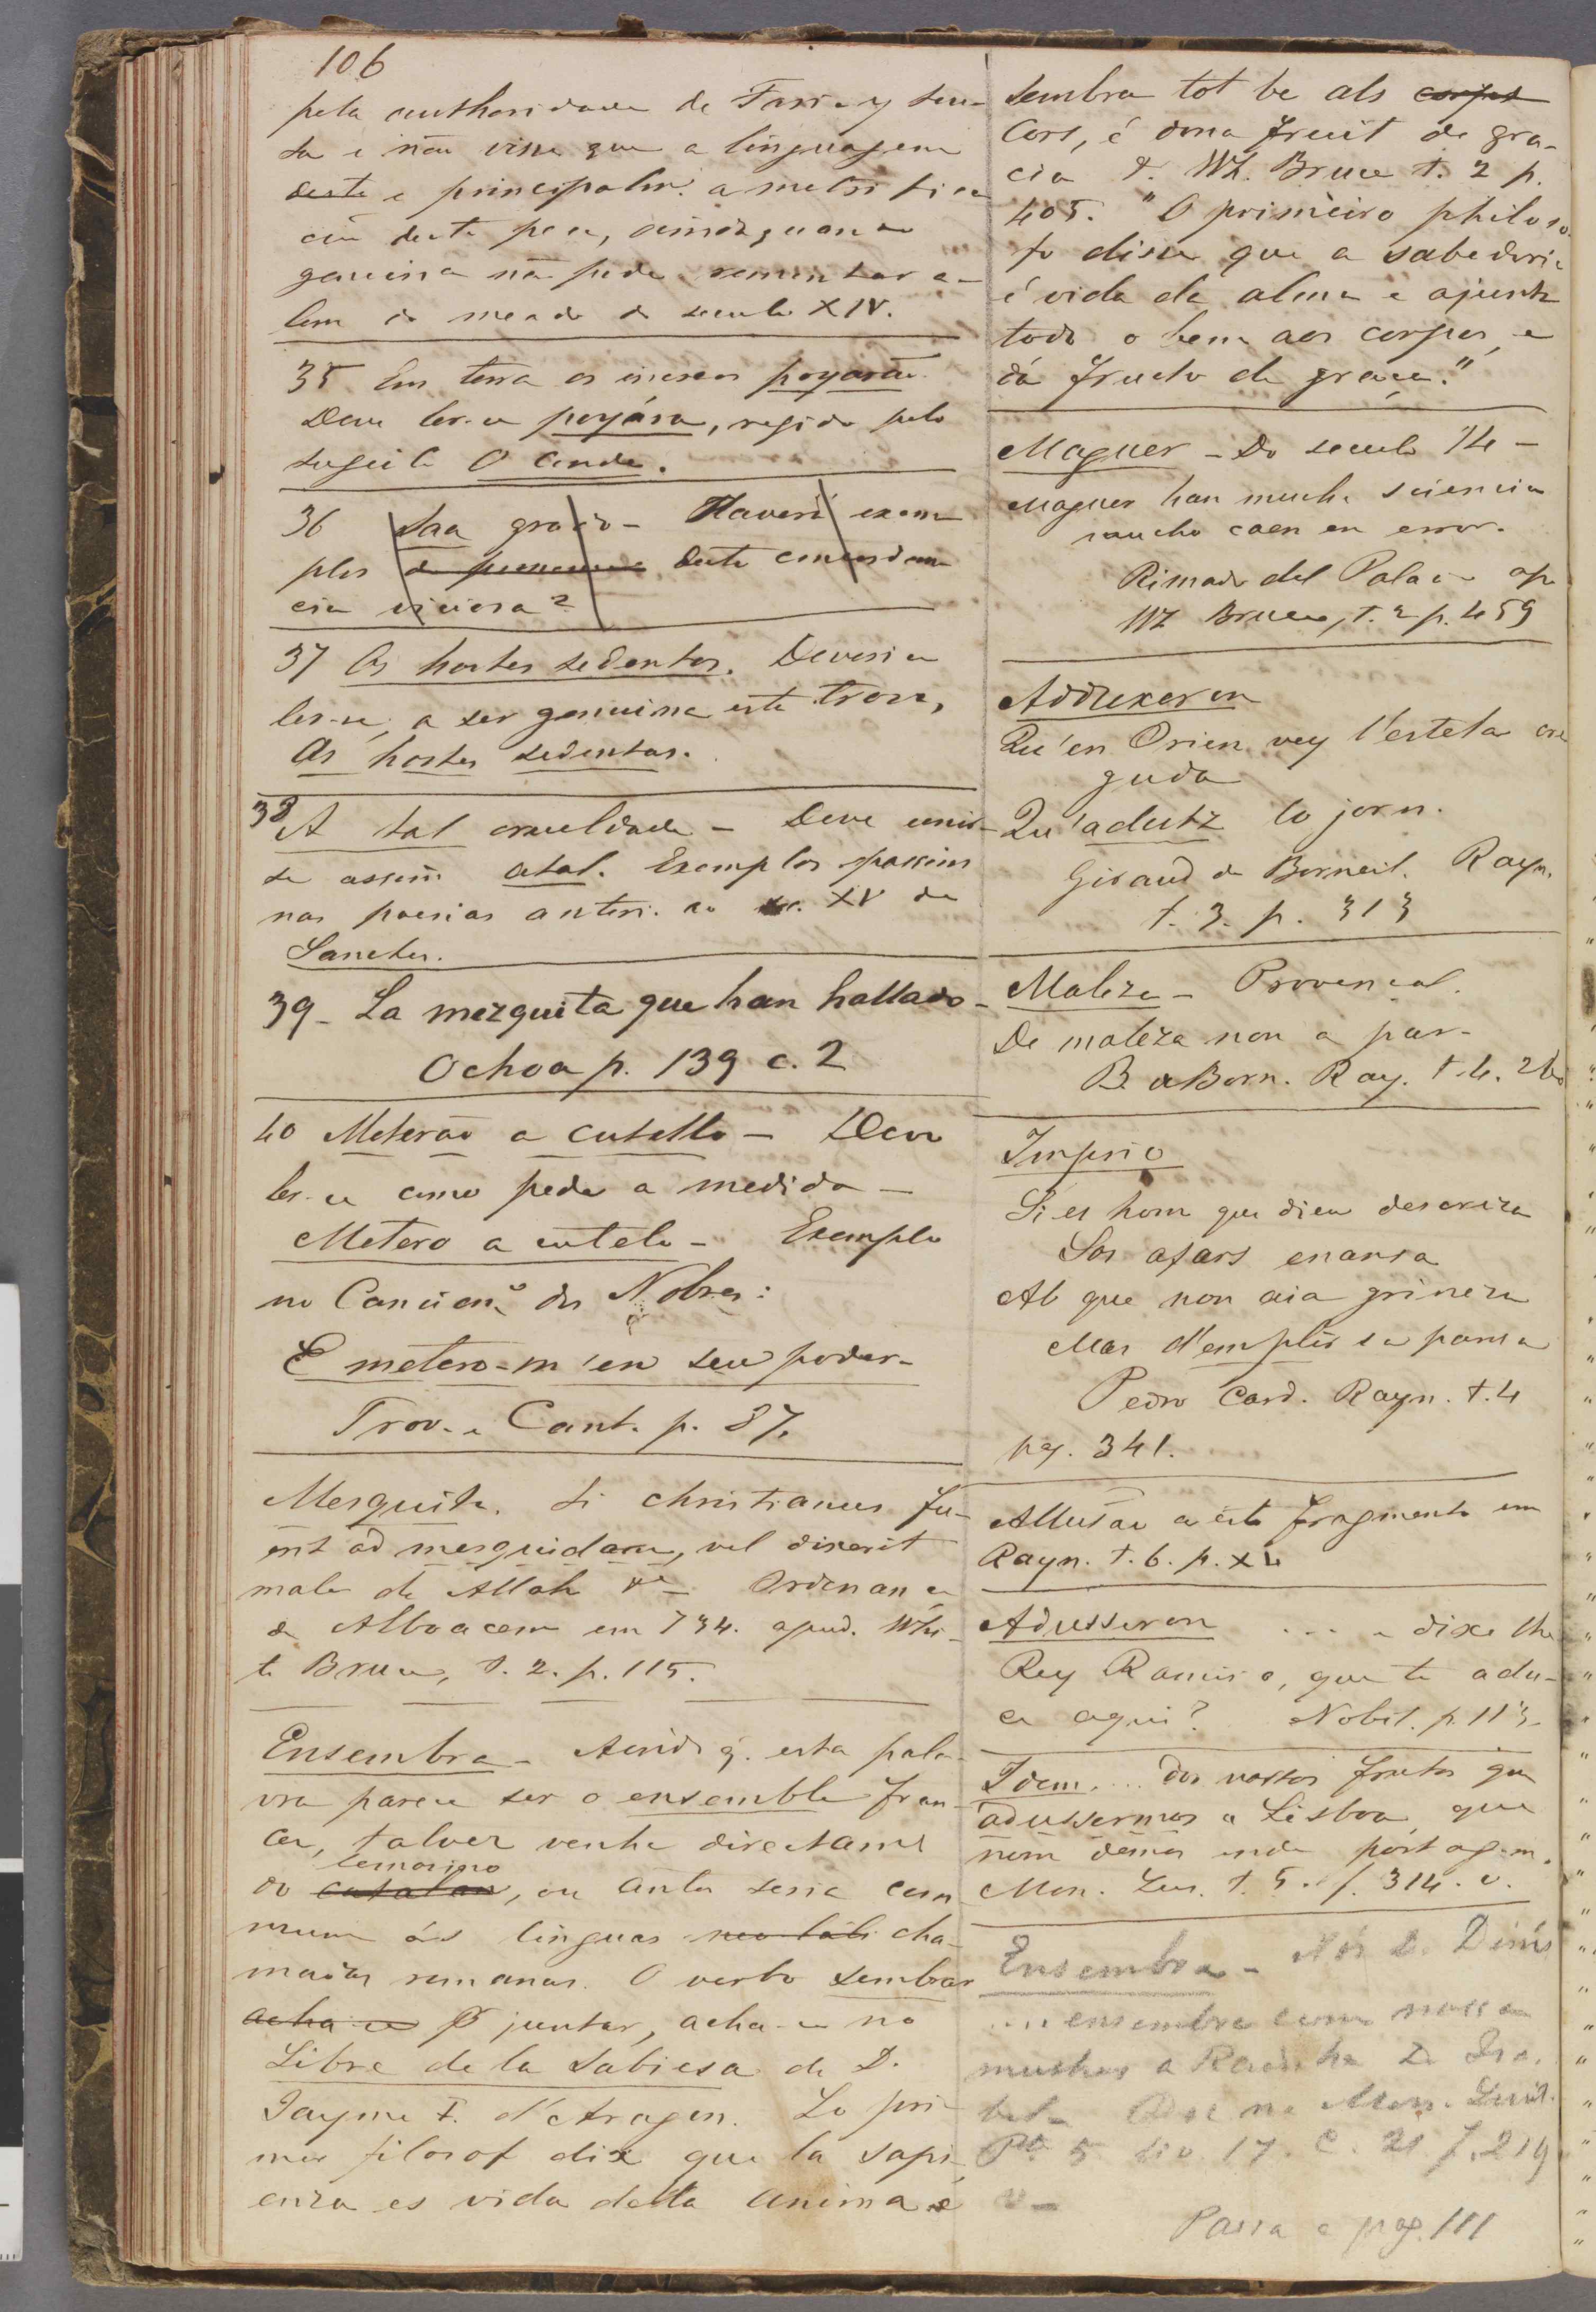 106
pela authoridade de Faria y Sou-
sa e não visse que a linguagem
deste e principalm. a metrifica
ção deste poe, ainda quando
genuina não pode remontar a-
lem do meado do seculo XIV.
35 Em terra os imersos poyarão
Deve ler-se poyára, regido pelo
sugeito O Conde.
36 Saa grado - Haverá exem
plos deste concordan
cia viciosa?
37 Os hostes sedentos. Deveria
ler-se, a ser genuina este trova,
As hostes sedentas.
38 A tal crueldade - Deve unir-
se assim atal. Exemplos passim
nas poesias anteri. ao sec. XV de
Sanchez.
39 - La mezquita que han hallado -
Ochoa p. 139 c. 2
40 Meterão a cutello - Deve
ler-se como pede a medida -
Metero a cutelo - Exemplo
no Cancion.º dos Nobres:
E metero-m'en seu poder -
Trov. e Cant. p. 87.
Mesquita. Si christianus fu-
erit ad mesquidam, vel dixerit
male de Allah &ª - Ordenança
de Alboacem em 734. apud. Whi-
te Bruce, t. 2. p. 115.
Ensembra - Ainda q. esta pala-
vra parece ser o ensemble fran-
cez, talvez venha directame
do catalan lemosino, ou antes seria com
mum ás linguas neo lati cha-
madas romanas. O verbo sembrar
acha-se p juntar, acha-se no
Libre de la Sabiesa de D.
Jayme I. d'Aragon. Lo pri-
mer filosof dix que la sapi-
enza es vida della anima e
sembra tot be als corpos
Cors, é dona fruit de gra-
cia V. Wh. Bruce t. 2 p.
405. "O primeiro philoso-
fo disse que a sabedoria
é vida da alma e ajunta
todo o bem aos corpos, e
dá fructo de graça."
Maguer - Do seculo 14 -
Maguer han mucha sciencia
mucho caen en error.
Rimado del Palacio ap
Wh Bruce, t. 2 p. 459
Adduxeron
Qu'en Orien vey l'estela cre
guda
Qu'adutz lo jorn.
Giraud de Borneil. Rayn.
t. 3. p. 313
Maleza - Provençal.
De maleza non a par -
B. de Born. Ray. t. 4. 260
Imprio
Si es hom que dieu descreza
Sos afars enansa
Ab que non aia grineza
Mas d'emplir sa pansa
Pedro Card. Rayn. t. 4
pag. 341.
Allusão a este fragmento em
Rayn. t. 6. p. XL
Adusseron ... e dixe lhe
Rey Ramiro, que te adu-
ce aqui? Nobil. p. 113.
Idem. ... dos nossos frutos que
adussermos a Lisboa que
nom demos ende portagem.
Mon. Lus. t. 5. f. 314. v.
Ensembra - Nós D. Dinís
... ensembra com nossa
mulher a Rainha D. Isa.
bel - Doc na Mon. Lusit.
Pte 5 liv 17. C. 21 f. 219
v -
Passa a pag. 111